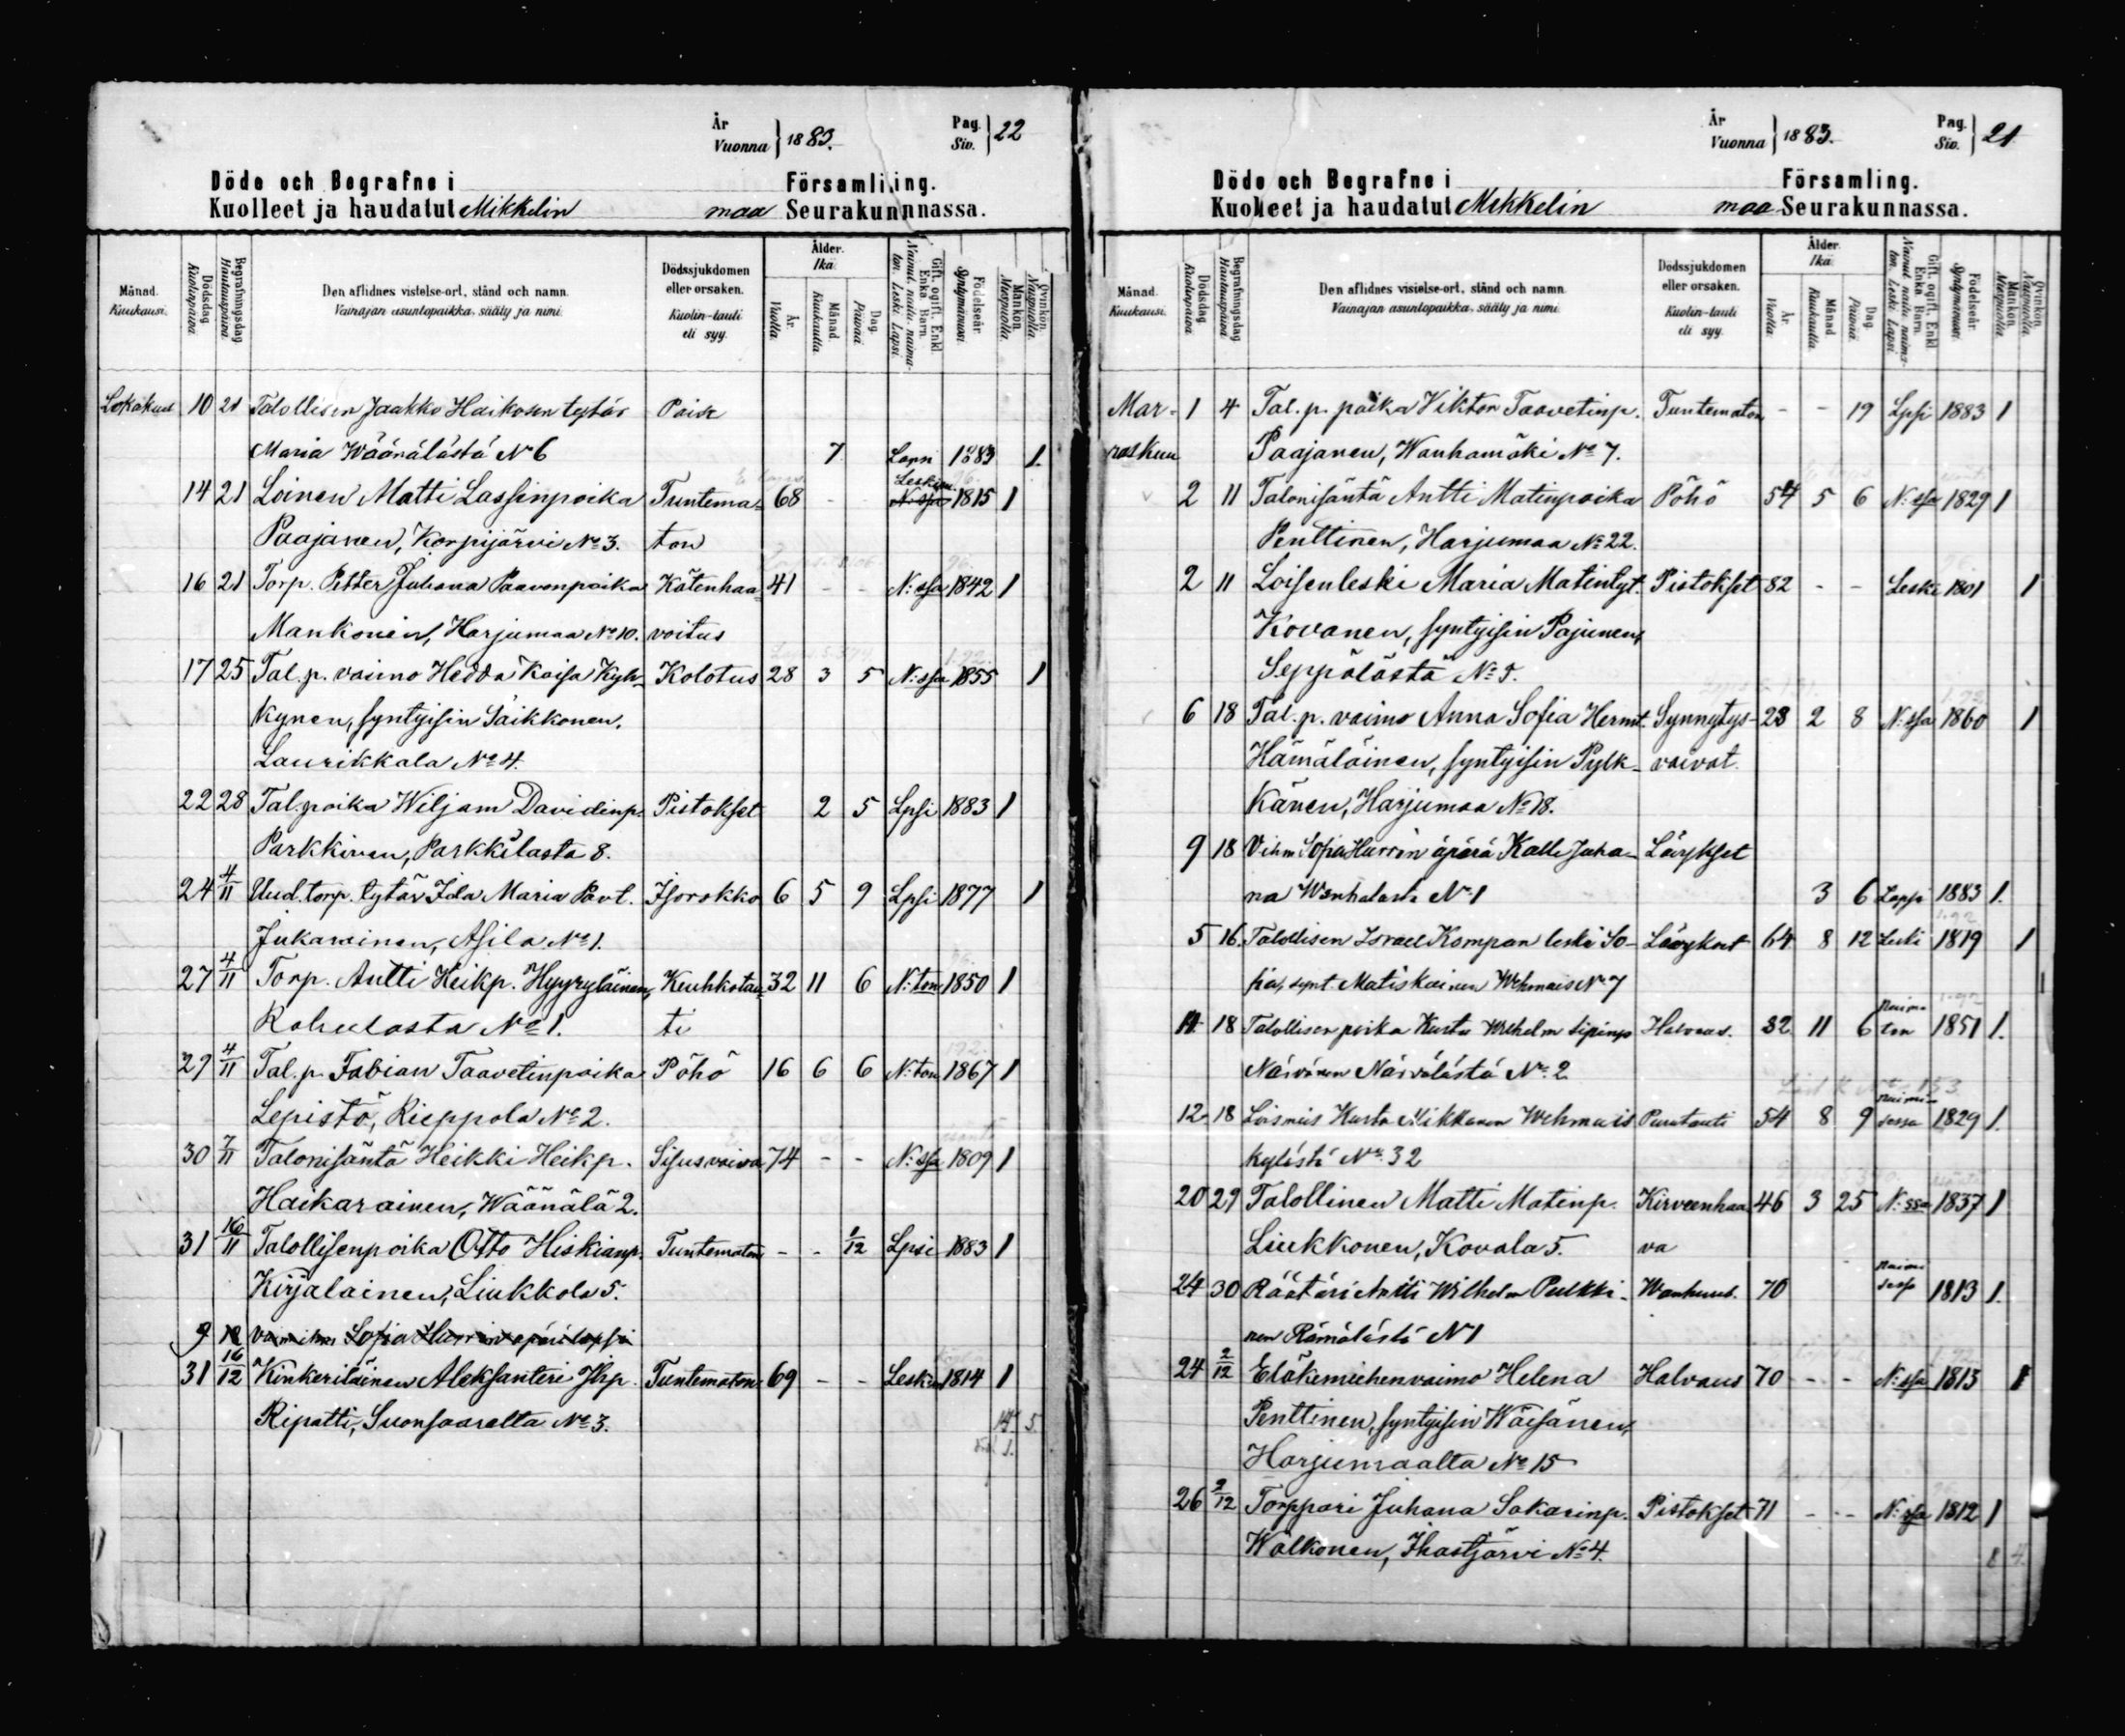 År
Vuonna } 1883.
Pag.
Siv. } 22
Döde och Begrafne i Församliing.
Kuolleet ja haudatut Mikkelin maa Seurakunnnassa.
Månad. Kuukausi.
Dödsdag. Kuolinpäivä.
Begrafningsdag. Hautauspäivä.
Den aflidnes vistelse-ort, stånd och namn.
Vainajan asuntopaikka, sääty ja nimi.
Dödssjukdomen eller orsaken.
Kuolin-tauti eli syy.
Ålder. Ikä.
År. Vuotta.
Månad. Kuukautta.
Dag. Päivää.
Gift, ogift, Enkl. Enka. Barn.
Nainut, naitu, naimaton. Leski. Lapsi.
Födelseår. Syntymävuosi.
Mankön. Miespuolia.
Qvinkön. Naispuolia.
Lokakuu 10 21 Talollisen Jaakko Haikosen tytär Paise
Maria Wäänälästä No 6 7 Lapsi 1883 1.
14 21 Loinen Matti Lassinpoika Tuntema- 68 - - Leski N:ssa 1815 1
Paajanen, Korpijärvi No 3. ton
16 21 Torp. Petter Juhana Paavonpoika Kätenhaa- 41 - - N:ssa 1842 1
Mankonen, Harjumaa No 10. voitus
17 25 Tal. p. vaimo Hedda Kaisa Kyh- Kolotus 28 3 5 N:ssa 1855 1
kynen, syntyisin Säikkonen,
Laurikkala No 4.
22 28 Tal. poika Wiljam Davidinp. Pistokset 2 5 Lpsi 1883 1
Parkkinen, Parkkilasta 8.
24 4/11 Uud. torp. tytär Ida Maria Pavt. Isorokko 6 5 9 Lpsi 1877 1
Jukarainen, Asila No 1.
27 4/11 Torp. Antti Heikp. Hyyryläinen, Keuhkotau- 32 11 6 N:ton 1850 1
Rahulasta No 1. ti
29 4/11 Tal. p. Fabian Taavetinpoika Pöhö 16 6 6 N:ton 1867 1
Lepistö, Rieppola No 2.
30 7/11 Talonisäntä Heikki Heikp. Sisusvaiva 74 - - N:ssa 1809 1
Haikarainen, Wäänälä 2.
31 16/11 Talollisenpoika Otto Hiskianp. Tuntematon - - 1/12 Lpsi 1883 1
Kirjalainen, Liukkola 5.
9 18 Sofia Hurrin äpärälapsi
31 16/12 Kinkeriläinen Aleksanteri Jhp. Tuntematon 69 - - Leski 1814 1
Ripatti, Suonsaarelta No 3.
14. 5.
År
Vuonna } 1883.
Pag.
Siv. } 21
Döde och Begrafne i Församling.
Kuolleet ja haudatut Mikkelin maa Seurakunnassa.
Månad. Kuukausi.
Dödsdag. Kuolinpäivä.
Begrafningsdag. Hautauspäivä.
Den aflidnes vistelse-ort, stånd och namn.
Vainajan asuntopaikka, sääty ja nimi.
Dödssjukdomen eller orsaken.
Kuolin-tauti eli syy.
Ålder. Ikä.
År. Vuotta.
Månad. Kuukautta.
Dag. Päivää.
Gift, ogift, Enkl. Enka. Barn.
Nainut, naitu, naimaton. Leski. Lapsi.
Födelseår. Syntymävuosi.
Mankön. Miespuolia.
Qvinkön. Naispuolia.
Mar- 1 4 Tal. p. poika Viktor Taavetinp. Tuntematon - - 19 Lpsi 1883 1
raskuu Paajanen, Wanhamäki No 7.
2 11 Talonisäntä Antti Matinpoika Pöhö 54 5 6 N:ssa 1829 1
Penttinen, Harjumaa No 22.
2 11 Loisenleski Maria Matintyt. Pistokset 82 - - Leski 1801 1
Kovanen, syntyisin Pajunen,
Seppälästä No 5.
6 18 Tal. p. vaimo Anna Sofia Hermt. Synnytys- 23 2 8 N:ssa 1860 1
Hämäläinen, syntyisin Pylk- vaivat.
känen, Harjumaa No 18.
9 18 Vihm Sofia Hurrin äpärä Kalle Juha- Läväkset
na Wanhalasta No 1 3 6 Lapsi 1883 1.
5 16 Talollisen Israel Kompan leski So- 64 8 12 Leski 1819 1
fia, synt. Matiskainen Wehmais No 7
11 18 Talollisen poika Kusta Wilhelm Sipinp Halvaus. 32 11 6 Naima ton 1851 1.
Närvänen Närvälästä No 2
12 18 Loismies Kusta Mikkonen Wehmais 54 8 9 Naimi- sessa 1829 1.
kylästä No 32
20 29 Talollinen Matti Matinp. Kirveenhaa- 46 3 25 N:ssa 1837 1
Liukkonen, Kovala 5. va
24 30 Räätäri Antti Wilhelm Pulkki- Wanhuus. 70 1813 1.
nen Rämälästä No 1
24 2/12 Eläkemiehenvaimo Helena Halvaus 70 - - N:ssa 1813 1
Penttinen, syntyisin Wäisänen,
Harjumaalta No 15
26 2/12 Torppari Juhana Sakarinp. Pistokset 71 - - N:ssa 1812 1
Walkonen, Ihastjärvi No 4.
8 4.